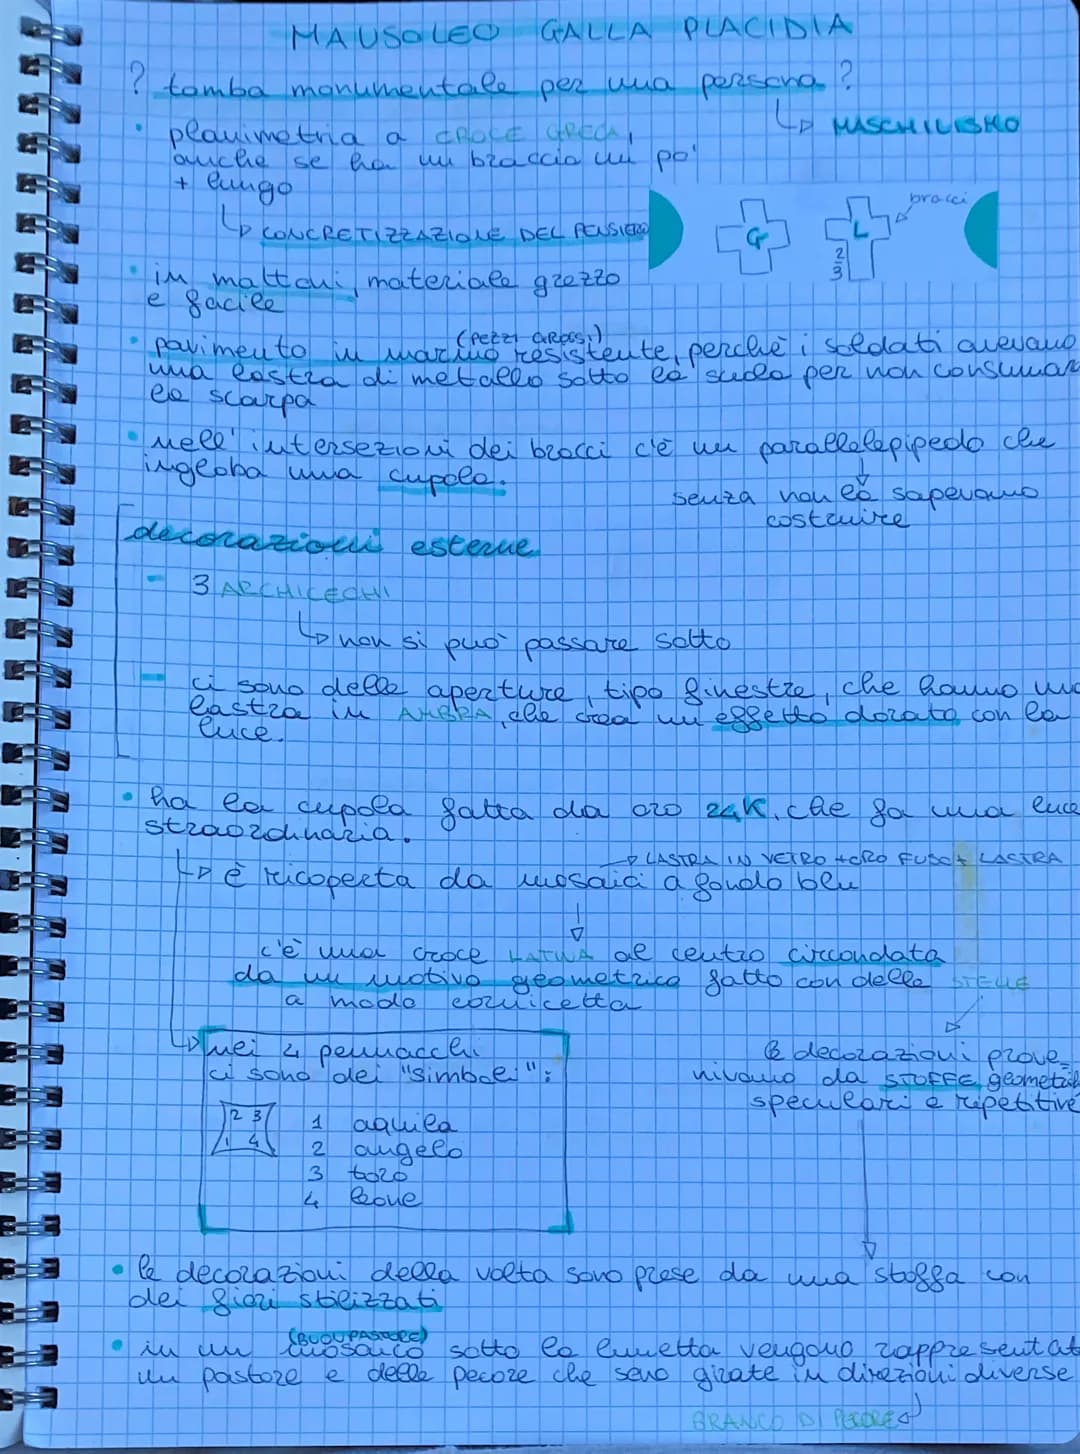 MAUSOLEO GALLA PLACIDIA
? tomba monumentale per una persona ?
↳ MASCHILISMO
• planimetria a CROCE GRECA,
anche se ha un braccio un po'
+ lungo
↳ CONCRETIZZAZIONE DEL PENSIERO
bracci
G L
2
3
• in mattoni, materiale grezzo
e facile
(PEZZI GROSSI)
• pavimento in marmo resistente, perchè i soldati avevano
una lastra di metallo sotto la suola per non consumar
la scarpa
• nell'intersezioni dei bracci c'è un parallelepipedo che
ingloba una cupola.
senza non la sapevano
costruire
decorazioni esterne
- 3 ARCHICECHI
↳ non si può passare sotto
- ci sono delle aperture, tipo finestre, che hanno una
lastra in AMBRA, che crea un effetto dorato con la
luce.
• ha la cupola fatta da oro 24K, che fa una luce
straordinaria.
→ LASTRA IN VETRO + ORO FUSO + LASTRA
↳ è ricoperta da mosaici a fondo blu
c'è una croce LATINA al centro circondata
da un motivo geometrico fatto con delle STELLE
a modo cornicetta
↳ nei 4 pennacchi
ci sono dei "simboli":
2 3
1 4
1 aquila
2 angelo
3 toro
4 leone
le decorazioni prove-
nivano da STOFFE geometri
speculari e ripetitive
• le decorazioni della volta sono prese da una stoffa con
dei fiori stilizzati
(BUON PASTORE)
• in un mosaico sotto la lunetta vengono rappresentat
un pastore e delle pecore che sono girate in direzioni diverse
BRANCO DI PECORE